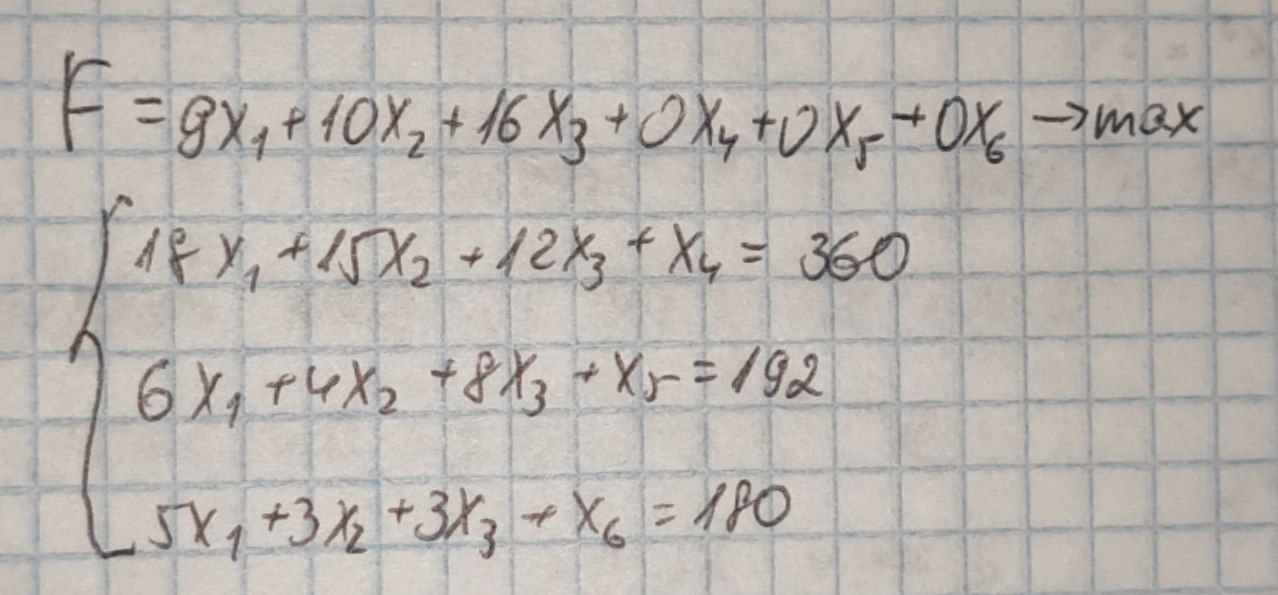 F = 9x₁ + 10x₂ + 16x₃ + 0x₄ + 0x₅ + 0x₆ → max
18x₁ + 15x₂ + 12x₃ + x₄ = 360
6x₁ + 4x₂ + 8x₃ + x₅ = 192
5x₁ + 3x₂ + 3x₃ + x₆ = 180